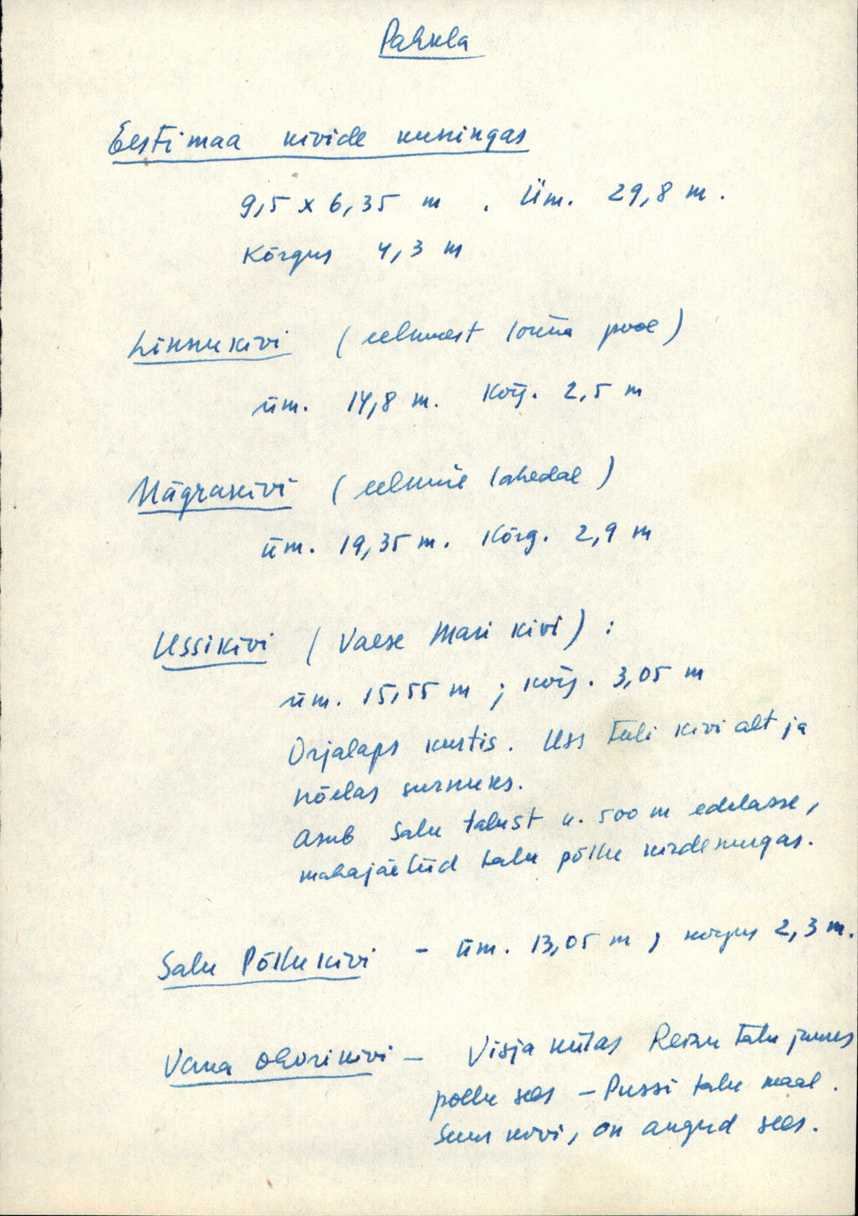 Pahkla
Eestimaa kivide kuningas
9,5 x 6,35 m. Üm. 29,8 m.
Kõrgus 4,3 m
Linnukivi (eelmisest lõuna pool)
üm. 14,8 m. Kõrg. 2,5 m
Mägrakivi (eelmise lähedal)
üm. 19,35 m. Kõrg. 2,9 m
Ussikivi (Vaese Mari kivi):
üm. 15,55 m; kõrg. 3,05 m
Orjalaps kustis. Uss tuli kivi alt ja
nõelas surnuks.
Asub Salu talust u. 500 m edelasse,
mahajäetud talu põllu kirdenurgas.
Salu Põllukivi - üm. 13,05 m, kõrgus 2,3 m.
Vana ohvrikivi - Visja külas Reinu talu juures
põllu sees - Pussi talu maal.
Suur kivi, on augud sees.